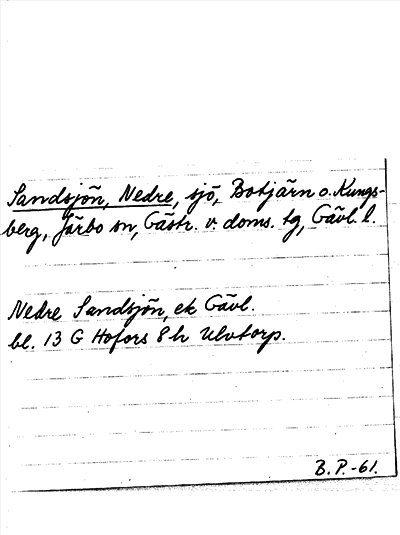 Sandsjön, Nedre, sjö, Botjärn o. Kungs-
berg, Järbo sn, Gästr. v. doms. tg, Gävl. l.
Nedre Sandsjön, ek Gävl.
bl. 13 G Hofors 8 h Ulvtorp.
B. P. -61.